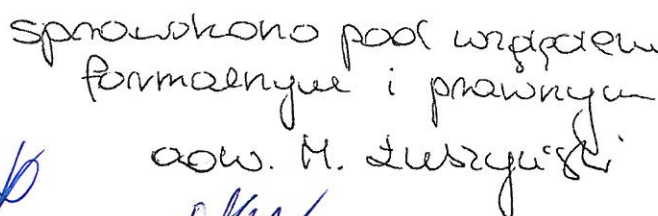 sprawdzono pod względem
formalnym i prawnym
adw. M. Łuszczyński